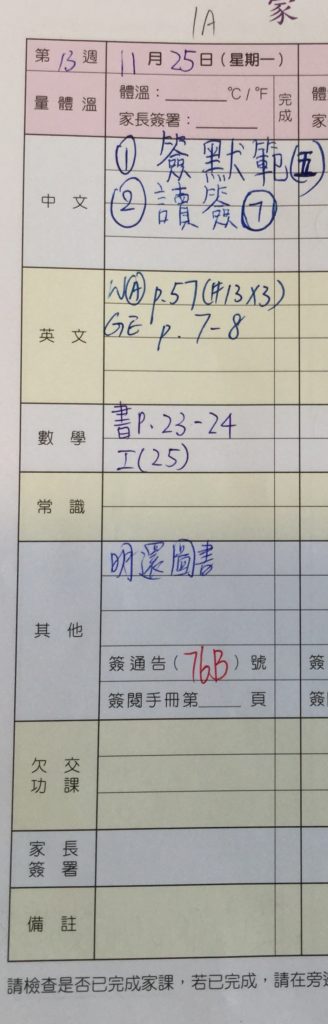 1A
家
第 13 週
11 月 25 日 (星期一)
量 體 溫
體溫：______ °C / °F
家長簽署：______
完成
中 文
① 簽默範(五)
② 讀簽⑦
英 文
W(A) p.57 (#13 x3)
GE p. 7-8
數 學
書P. 23-24
工(25)
常 識
其 他
明還圖書
簽通告 ( 76B ) 號
簽閱手冊第____ 頁
欠 交
功 課
家 長
簽 署
備 註
請檢查是否已完成家課，若已完成，請在旁